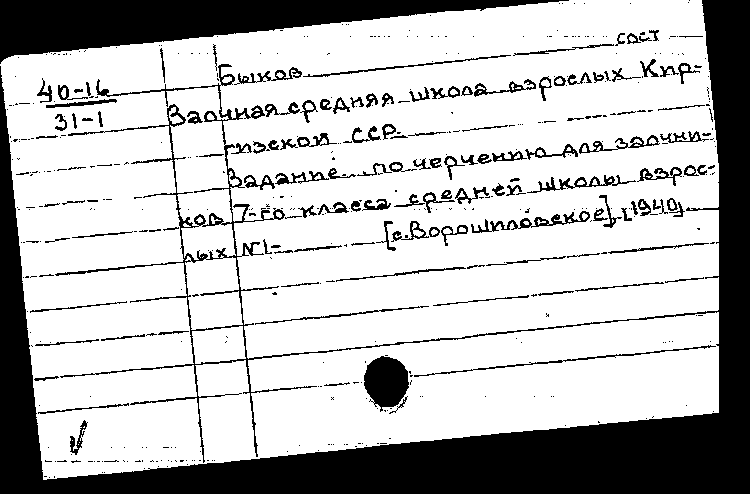 сост
40-16
31-1
Быков.
Заочная средняя школа взрослых Кир-
гизской ССР.
Задание... по черчению для заочни-
ков 7-го класса средней школы взрос-
лых №1- [с.Ворошиловское], [1940].